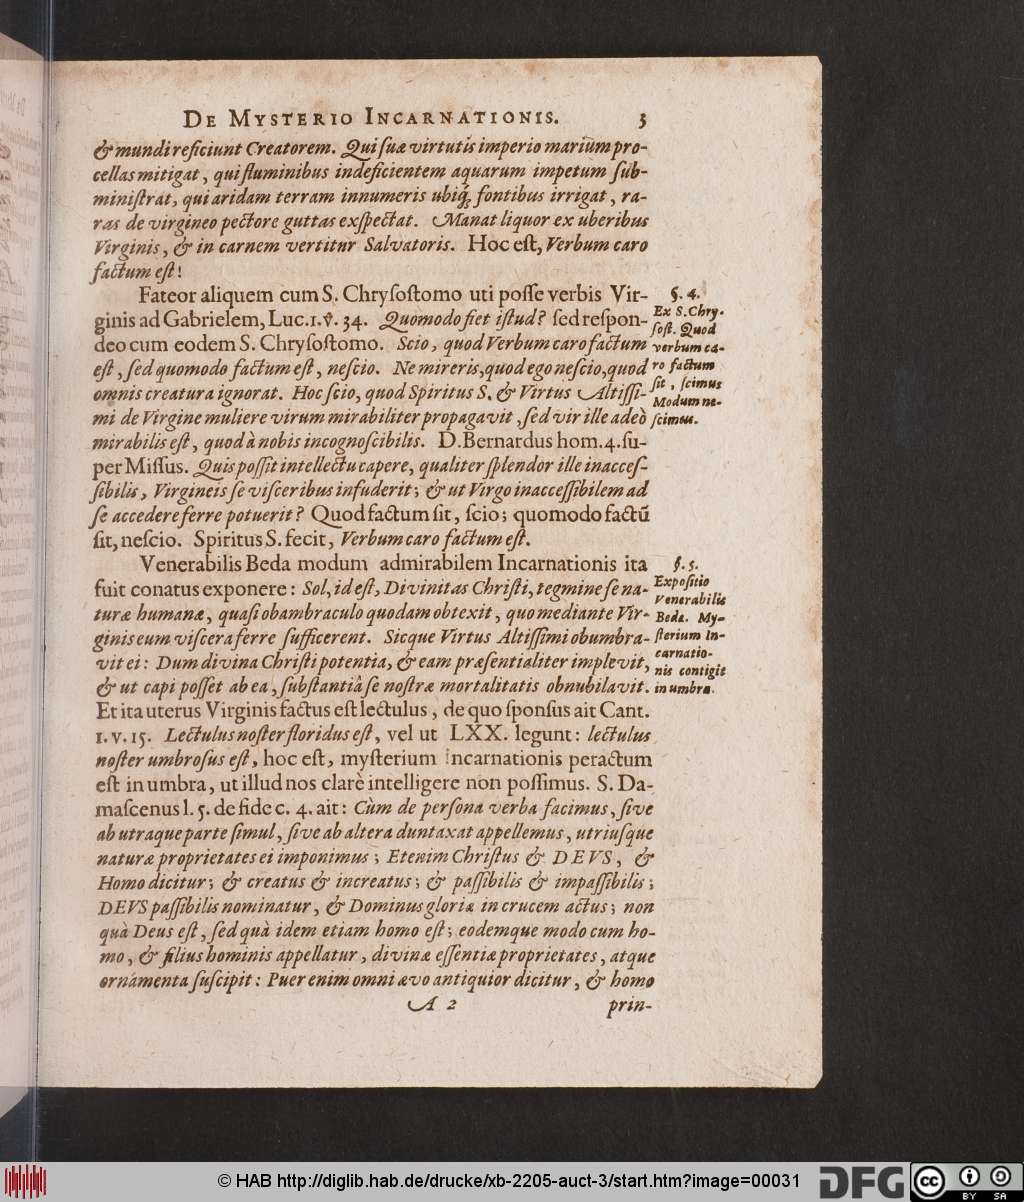 DE MYSTERIO INCARNATIONIS. 3
& mundi reficiunt Creatorem. Qui ſuæ virtutis imperio marium pro-
cellas mitigat, qui fluminibus indeficientem aquarum impetum ſub-
miniſtrat, qui aridam terram innumeris ubiq́; fontibus irrigat, ra-
ras de virgineo pectore guttas exſpectat. Manat liquor ex uberibus
Virginis, & in carnem vertitur Salvatoris. Hoc eſt, Verbum caro
factum eſt!
Fateor aliquem cum S. Chryſoſtomo uti poſſe verbis Vir-
ginis ad Gabrielem, Luc. 1. ℣. 34. Quomodo fiet iſtud? ſed reſpon-
deo cum eodem S. Chryſoſtomo. Scio, quod Verbum caro factum
eſt, ſed quomodo factum eſt, neſcio. Ne mireris, quod ego neſcio, quod
omnis creatura ignorat. Hoc ſcio, quod Spiritus S. & Virtus Altiſſi-
mi de Virgine muliere virum mirabiliter propagavit, ſed vir ille adeò
mirabilis eſt, quod à nobis incognoſcibilis. D. Bernardus hom. 4. ſu-
per Miſſus. Quis poſſit intellectu capere, qualiter ſplendor ille inacceſ-
ſibilis, Virgineis ſe viſceribus infuderit; & ut Virgo inacceſſibilem ad
ſe accedere ferre potuerit? Quod factum ſit, ſcio; quomodo factũ
ſit, neſcio. Spiritus S. fecit, Verbum caro factum eſt.
§. 4.
Ex S. Chry-
ſoſt. Quod
verbum ca-
ro factum
ſit, ſcimus
Modum ne-
ſcimus.
Venerabilis Beda modum admirabilem Incarnationis ita
fuit conatus exponere: Sol, id eſt, Divinitas Chriſti, tegmine ſe na-
turæ humanæ, quaſi obambraculo quodam obtexit, quo mediante Vir-
ginis eum viſcera ferre ſufficerent. Sicque Virtus Altiſſimi obumbra-
vit ei: Dum divina Chriſti potentia, & eam præſentialiter implevit,
& ut capi poſſet ab ea, ſubſtantiâ ſe noſtræ mortalitatis obnubilavit.
Et ita uterus Virginis factus eſt lectulus, de quo ſponſus ait Cant.
1. v. 15. Lectulus noſter floridus eſt, vel ut LXX. legunt: lectulus
noſter umbroſus eſt, hoc eſt, myſterium incarnationis peractum
eſt in umbra, ut illud nos clarè intelligere non poſſimus. S. Da-
maſcenus l. 5. de fide c. 4. ait: Cùm de perſona verba facimus, ſive
ab utraque parte ſimul, ſive ab altera duntaxat appellemus, utriuſque
naturæ proprietates ei imponimus; Etenim Chriſtus & DEVS, &
Homo dicitur; & creatus & increatus; & paſſibilis & impaſſibilis;
DEVS paſſibilis nominatur, & Dominus gloriæ in crucem actus; non
quà Deus eſt, ſed quà idem etiam homo eſt; eodemque modo cum ho-
mo, & filius hominis appellatur, divinæ eſſentiæ proprietates, atque
ornamenta ſuſcipit: Puer enim omni ævo antiquior dicitur, & homo
§. 5.
Expoſitio
Venerabilis
Bedæ. My-
ſterium In-
carnatio-
nis contigit
in umbra.
A 2 prin-
© HAB http://diglib.hab.de/drucke/xb-2205-auct-3/start.htm?image=00031
DFG
cc
BY SA